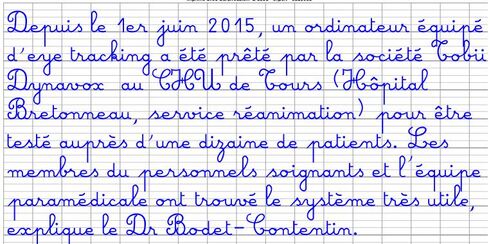 Depuis le 1er juin 2015, un ordinateur équipé
d'eye tracking a été prêté par la société Tobii
Dynavox au CHU de Tours (Hôpital
Bretonneau, service réanimation) pour être
testé auprès d'une dizaine de patients. Les
membres du personnels soignants et l'équipe
paramédicale ont trouvé le système très utile,
explique le Dr Bodet-Contentin.